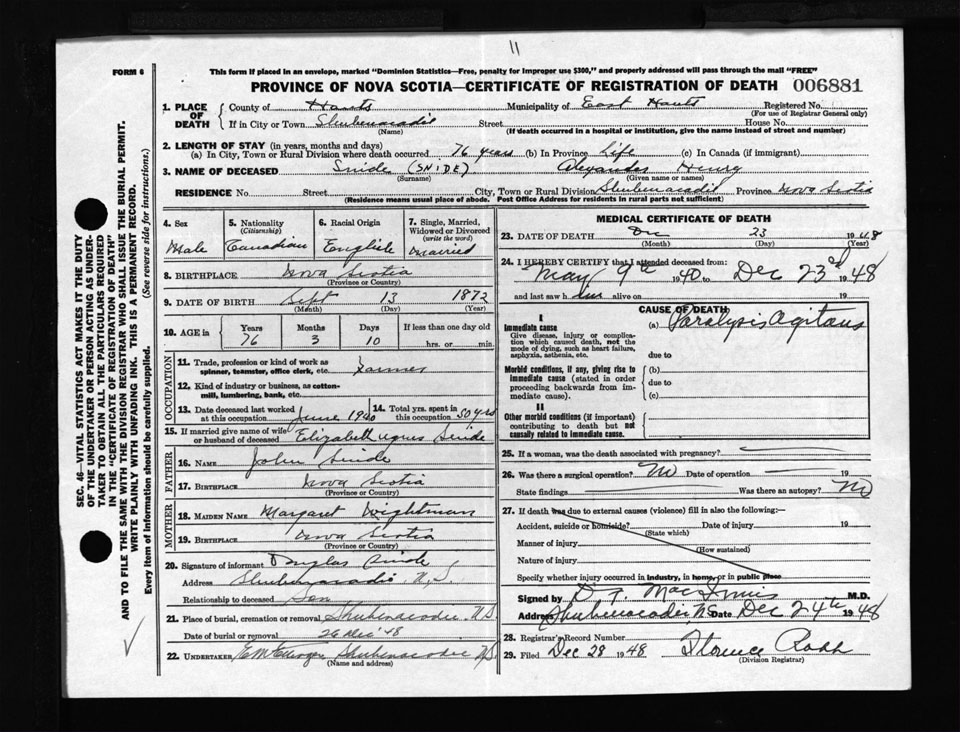 11
FORM 6
This form if placed in an envelope, marked "Dominion Statistics—Free, penalty for improper use $300," and properly addressed will pass through the mail "FREE"
PROVINCE OF NOVA SCOTIA—CERTIFICATE OF REGISTRATION OF DEATH 006881
1. PLACE OF DEATH
County of Hants Municipality of East Hants Registered No.
(For use of Registrar General only)
If in City or Town Shubenacadie Street House No.
(Name) (If death occurred in a hospital or institution, give the name instead of street and number)
2. LENGTH OF STAY (in years, months and days)
(a) In City, Town or Rural Division where death occurred 76 years (b) In Province Life (c) In Canada (if immigrant)
3. NAME OF DECEASED Snide (SNIDE) Alexander Henry
(Surname) (Given name or names)
RESIDENCE No. Street City, Town or Rural Division Shubenacadie Province Nova Scotia
(Residence means usual place of abode. Post Office Address for residents in rural parts not sufficient)
4. Sex
Male
5. Nationality
(Citizenship)
Canadian
6. Racial Origin
English
7. Single, Married, Widowed or Divorced
(write the word)
Married
8. BIRTHPLACE Nova Scotia
(Province or Country)
9. DATE OF BIRTH Sept 13 1872
(Month) (Day) (Year)
10. AGE in Years Months Days If less than one day old
76 3 10 hrs. or min.
OCCUPATION
11. Trade, profession or kind of work as
spinner, teamster, office clerk, etc. Farmer
12. Kind of industry or business, as cotton-
mill, lumbering, bank, etc.
13. Date deceased last worked
at this occupation June 1940
14. Total yrs. spent in
this occupation 50 yrs
15. If married give name of wife
or husband of deceased Elizabeth Agnes Snide
FATHER
16. NAME John Snide
17. BIRTHPLACE Nova Scotia
(Province or Country)
MOTHER
18. MAIDEN NAME Margaret Wightman
19. BIRTHPLACE Nova Scotia
(Province or Country)
20. Signature of informant Douglas Snide
Address Shubenacadie N.S.
Relationship to deceased Son
21. Place of burial, cremation or removal Shubenacadie N.S.
Date of burial or removal 26 Dec '48
22. UNDERTAKER Shubenacadie N.S.
(Name and address)
MEDICAL CERTIFICATE OF DEATH
23. DATE OF DEATH Dec 23 1948
(Month) (Day) (Year)
24. I HEREBY CERTIFY that I attended deceased from:
May 9th 1940 to Dec 23rd 1948
and last saw him alive on 19
CAUSE OF DEATH
I
Immediate cause
Give disease, injury or complica-
tion which caused death, not the
mode of dying, such as heart failure,
asphyxia, asthenia, etc.
(a) Paralysis Agitans
due to
Morbid conditions, if any, giving rise to
immediate cause (stated in order
proceeding backwards from im-
mediate cause).
(b)
due to
(c)
II
Other morbid conditions (if important)
contributing to death but not
causally related to immediate cause.
25. If a woman, was the death associated with pregnancy?
26. Was there a surgical operation? No Date of operation 19
State findings Was there an autopsy? No
27. If death was due to external causes (violence) fill in also the following:—
Accident, suicide or homicide? Date of injury 19
(State which)
Manner of injury
(How sustained)
Nature of injury
Specify whether injury occurred in industry, in home, or in public place
Signed by D. T. MacInnis M.D.
Address Shubenacadie, N.S. Date Dec 24th 1948
28. Registrar's Record Number
29. Filed Dec 28 1948 Florence Robb
(Division Registrar)
SEC. 46—VITAL STATISTICS ACT MAKES IT THE DUTY
OF THE UNDERTAKER OR PERSON ACTING AS UNDER-
TAKER TO OBTAIN ALL THE PARTICULARS REQUIRED
IN THE "CERTIFICATE OF REGISTRATION OF DEATH"
AND TO FILE THE SAME WITH THE DIVISION REGISTRAR WHO SHALL ISSUE THE BURIAL PERMIT.
WRITE PLAINLY WITH UNFADING INK. THIS IS A PERMANENT RECORD.
Every item of Information should be carefully supplied. (See reverse side for instructions.)